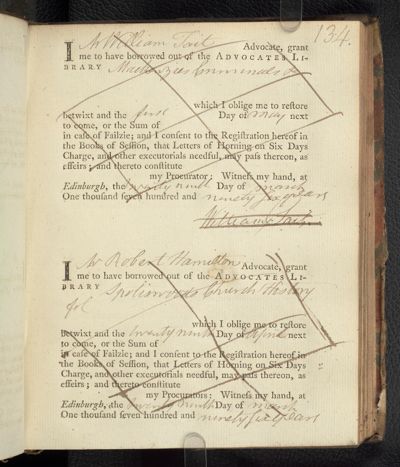 134.
I Mr William Tait Advocate, grant
me to have borrowed out of the ADVOCATES LI-
BRARY Mackenzies Criminals
which I oblige me to reſtore
betwixt and the first Day of May next
to come, or the Sum of
in caſe of Failzie; and I conſent to the Regiſtration hereof in
the Books of Seſſion, that Letters of Horning on Six Days
Charge, and other executorials needful, may paſs thereon, as
effeirs; and thereto conſtitute
my Procurator: Witneſs my hand, at
Edinburgh, the twenty ninth Day of March
One thouſand ſeven hundred and ninety six years
William Tait.
I Mr Robert Hamilton Advocate, grant
me to have borrowed out of the ADVOCATES LI-
BRARY Spotiswoods Church History
fol
which I oblige me to reſtore
betwixt and the twenty ninth Day of April next
to come, or the Sum of
in caſe of Failzie; and I conſent to the Regiſtration hereof in
the Books of Seſſion, that Letters of Horning on Six Days
Charge, and other executorials needful, may paſs thereon, as
effeirs; and thereto conſtitute
my Procurators: Witneſs my hand, at
Edinburgh, the twenty ninth Day of March
One thouſand ſeven hundred and ninety six years